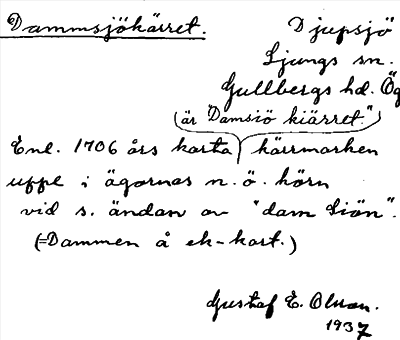 Dammsjökärret. Djupsjö
Ljungs sn.
Gullbergs hd. Ög
(är "Damsiö kiärret")
Enl. 1706 års karta kärrmarken
uppe i ägornas n. ö. hörn
vid s. ändan av "dam Siön".
(=Dammen å ek-kart.)
Gustaf E. Olsson.
1937